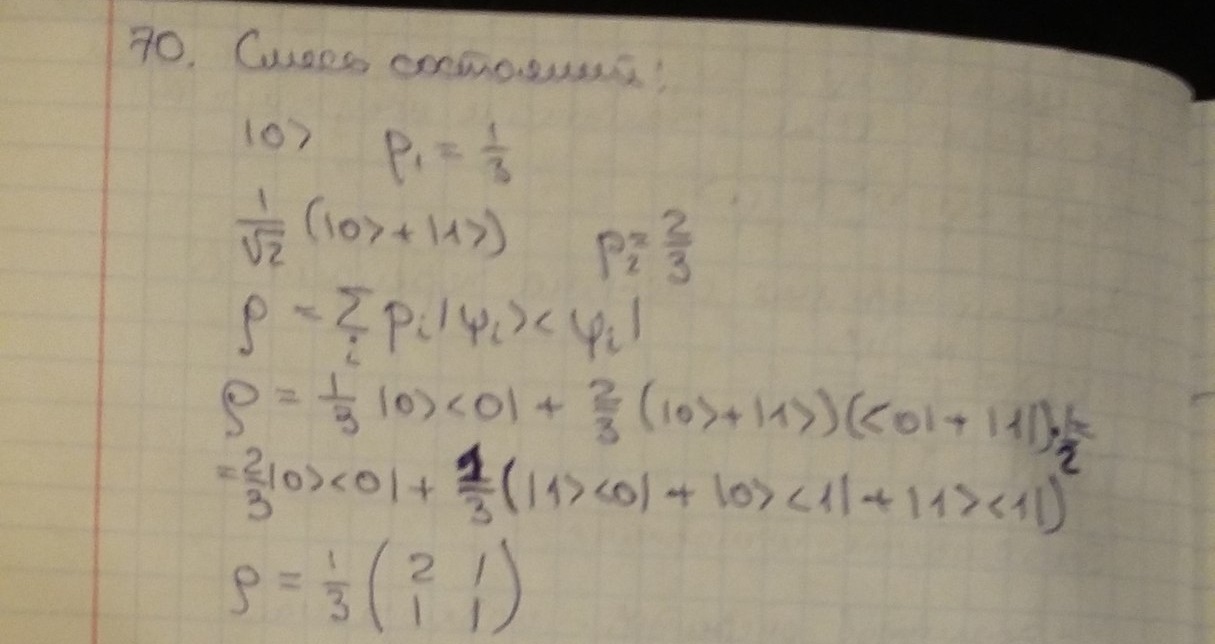 70. Смесь состояний:
|0> p₁ = 1/3
1/√2 (|0> + |1>) p₂ = 2/3
ρ = Σᵢ pᵢ |ψᵢ> < ψᵢ|
ρ = 1/3 |0> <0| + 2/3 (|0> + |1>) (<0| + |1|) · 1/2 =
= 2/3 |0> <0| + 1/3 (|1> <0| + |0> <1| + |1> <1|)
ρ = 1/3 ( 2 1
1 1 )